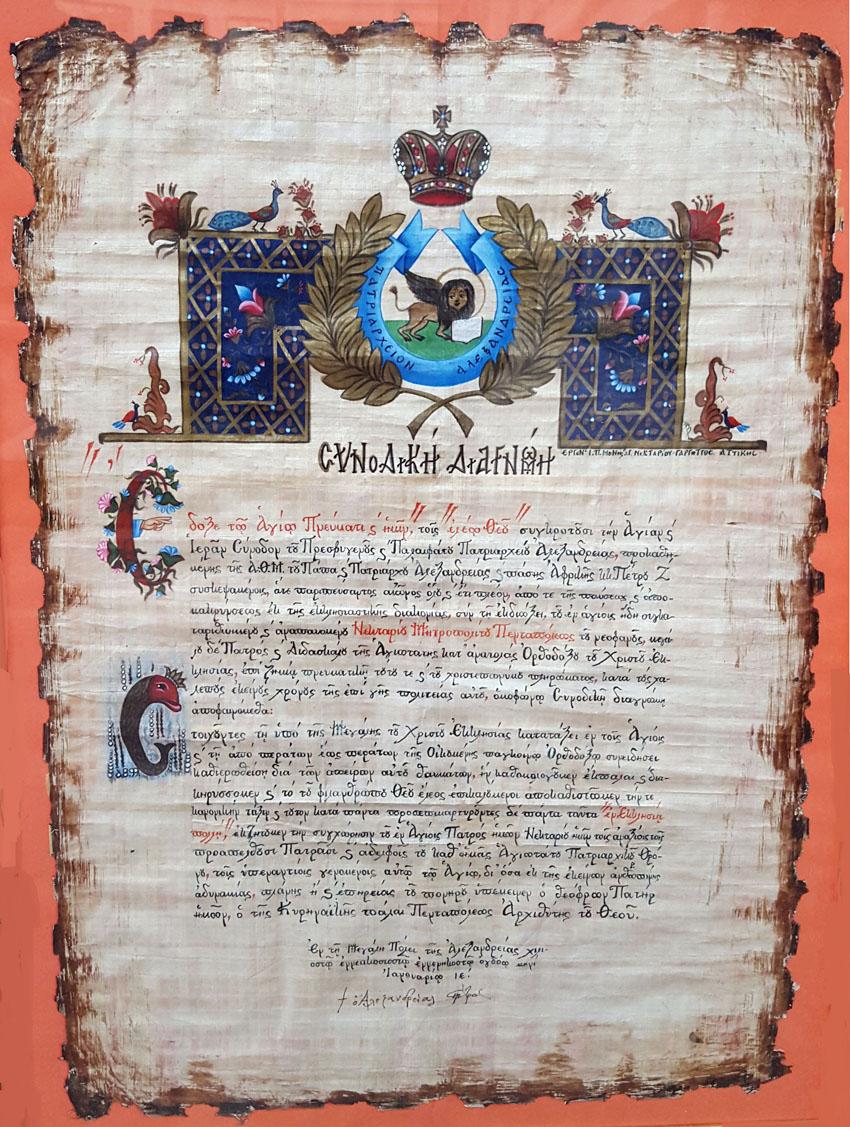 ΠΑΤΡΙΑΡΧΕΙΟΝ ΑΛΕΞΑΝΔΡΕΙΑΣ
ΣΥΝΟΔΙΚΗ ΔΙΑΓΝΩΜΗ
ΕΡΓΟΝ Ι. Π. ΜΟΝΗΣ ΑΓ. ΝΕΚΤΑΡΙΟΥ ΓΑΡΓΗΤΤΟΣ ΑΤΤΙΚΗΣ
Ἔδοξε τῷ Ἁγίῳ Πνεύματι ϗ ἡμῖν, τοῖς "ἐλέῳ Θεοῦ" συγκροτοῦσι τὴν Ἁγίαν ϗ
Ἱερὰν Σύνοδον τοῦ Πρεσβυγενοῦς ϗ Παλαιφάτου Πατριαρχείου Ἀλεξανδρείας, προκαθη-
μένης τῆς Α.Θ.Μ. τοῦ Πάπα ϗ Πατριάρχου Ἀλεξανδρείας ϗ πάσης Ἀφρικῆς κκ. Πέτρου Ζ΄
συσκεψαμένοις, ἅτε παριππεύσαντος αἰῶνος ὅλου ϗ ἐπὶ πλέον, ἀπό τε τῆς παύσεως ϗ ἀπο-
μακρύνσεως ἐκ τῆς ἐκκλησιαστικῆς διακονίας, σὺν τῇ ἐκδιώξει, τοῦ ἐν ἁγίοις ἤδη συγκα-
ταριθμουμένου ϗ ἀναπαυομένου Νεκταρίου Μητροπολίτου Πενταπόλεως τοῦ νεοφανοῦς, μεγά-
λου δὲ Πατρὸς ϗ Διδασκάλου τῆς Ἁγιωτάτης κατ' ἀνατολὰς Ὀρθοδόξου τοῦ Χριστοῦ Ἐκ-
κλησίας, ἐπὶ ζημίᾳ πνευματικῇ τούτου τε ϗ τοῦ χριστεπωνύμου πληρώματος, κατὰ τοὺς χα-
λεποὺς ἐκείνους χρόνους τῆς ἐπὶ γῆς πολιτείας αὐτοῦ, ὁμοφώνῳ Συνοδικῇ διαγνώμῃ
ἀποφαινόμεθα:
Στοιχοῦντες τῇ ὑπὸ τῆς Μεγάλης τοῦ Χριστοῦ Ἐκκλησίας κατατάξει ἐν τοῖς Ἁγίοις
ϗ τῇ ἀπὸ περάτων ἕως περάτων τῆς Οἰκουμένης παγκοίνῳ Ὀρθοδόξῳ συνειδήσει
καθιερωθείσῃ διὰ τῶν ἀπείρων αὐτοῦ θαυμάτων, ἣν καθομολογοῦμεν ἔκπαλαι ϗ δια-
κηρύσσομεν ϗ τὸ τοῦ φιλανθρώπου Θεοῦ ἔλεος ἐπικαλούμενοι ἀποκαθιστῶμεν τήν τε
κανονικὴν τάξιν ϗ τοῦτον κατὰ πάντα προσεπιμαρτυροῦντες δὲ πάντα ταῦτα "ἐν Ἐκκλησίᾳ
πολλῇ" ἐκζητοῦμεν τὴν συγχώρησιν τοῦ ἐν Ἁγίοις Πατρὸς ἡμῶν Νεκταρίου ἡμῖν τοῖς ἀναξίοις τοῖς
προαπελθοῦσι Πατράσι ϗ ἀδελφοῖς τοῦ καθ' ἡμᾶς Ἁγιωτάτου Πατριαρχικοῦ Θρό-
νου, τοῖς ὑπεναντίοις γενομένοις αὐτῷ τῷ Ἁγίῳ, δι' ὅσα ἐκ τῆς ἐκείνων ἀνθρωπίνης
ἀδυναμίας, πλάνης ἢ ϗ ἐπηρείας τοῦ πονηροῦ ὑπέμεινεν ὁ θεόφρων Πατὴρ
ἡμῶν, ὁ τῆς Κυρηναϊκῆς πάλαι Πενταπόλεως Ἀρχιθύτης τοῦ Θεοῦ.
Ἐν τῇ Μεγάλῃ Πόλει τῆς Ἀλεξανδρείας χιλι-
οστῷ ἐννεακοσιοστῷ ἐνενηκοστῷ ὀγδόῳ μηνὶ
Ἰανουαρίῳ ΙΕ΄.
† ὁ Ἀλεξανδρείας Πέτρος